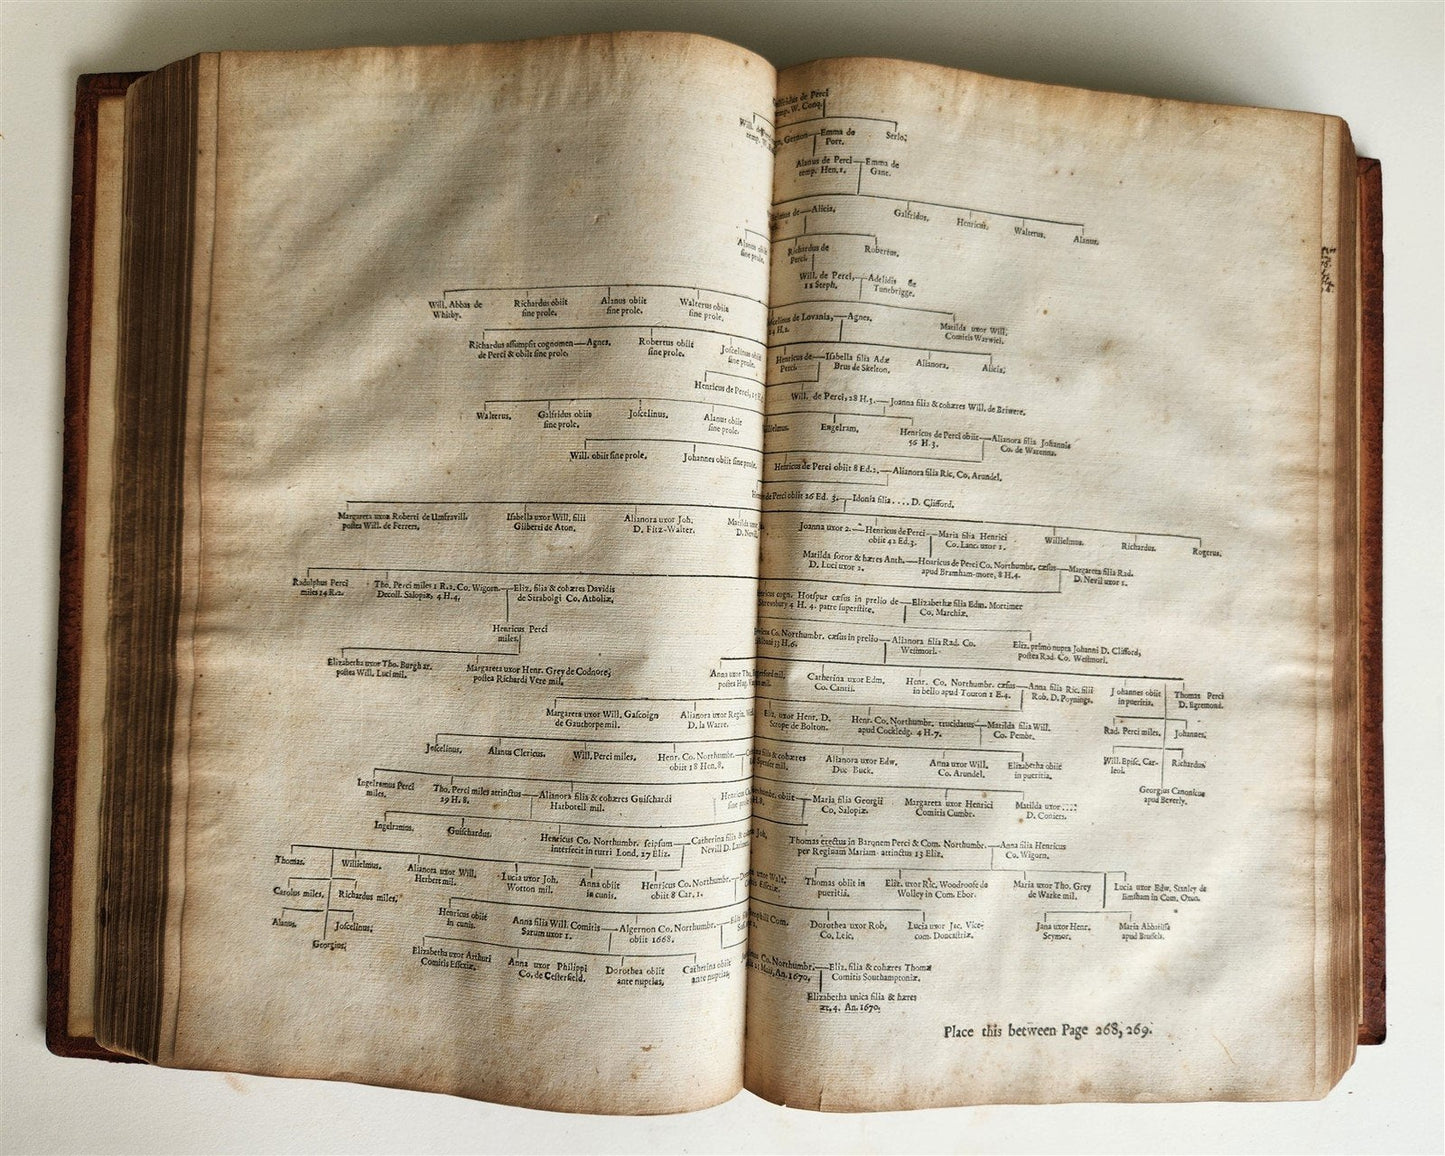 Galfridus de Perci
temp. W. Conq.
Will. de
temp. W.
Gernon—Emma de
Port.
Serlo.
Alanus de Perci—Emma de
temp. Hen. 1. Gant.
de—Alicia.
Galfridus.
Henricus.
Walterus.
Alanus.
Alanus obiit
sine prole.
Richardus de
Perci.
Robertus.
Will. de Perci,—Adelidis de
12 Steph. Tunebrigge.
Will. Abbas de
Whitby.
Richardus obiit
sine prole.
Alanus obiit
sine prole.
Walterus obiit
sine prole.
Joscelinus de Lovania,—Agnes.
24 H.2.
Matilda uxor Will.
Comitis Warwici.
Richardus assumpsit cognomen—Agnes.
de Perci & obiit sine prole.
Robertus obiit
sine prole.
Joscelinus obiit
sine prole.
Henricus de—Isabella filia Adæ
Perci. Brus de Skelton.
Alianora.
Alicia.
Henricus de Perci, 15 H.
Will. de Perci, 28 H.3.—Joanna filia & cohæres Will. de Briwere.
Walterus.
Galfridus obiit
sine prole.
Joscelinus.
Alanus obiit
sine prole.
Engelram.
Henricus de Perci obiit—Alianora filia Johannis
56 H.3. Co. de Warenna.
Will. obiit sine prole.
Johannes obiit sine prole.
Henricus de Perci obiit 8 Ed.2.—Alianora filia Ric. Co. Arundel.
de Perci obiit 26 Ed. 3.—Idonia filia .... D. Clifford.
Margareta uxor Roberti de Umfravill.
postea Will. de Ferrers.
Isabella uxor Will. filii
Gilberti de Aton.
Alianora uxor Joh.
D. Fitz-Walter.
Matilda
D. Nevil
Joanna uxor 2.—Henricus de Perci—Maria filia Henrici
obiit 42 Ed.3. Co. Lanc. uxor 1.
Willielmus.
Richardus.
Rogerus.
Matilda soror & hæres Anth.—Henricus de Perci Co. Northumbr. cæsus—Margareta filia Rad.
D. Luci uxor 2. apud Bramham-more, 8 H.4. D. Nevil uxor 1.
Radulphus Perci
miles 14 R.2.
Tho. Perci miles 1 R.2. Co. Wigorn.—Eliz. filia & cohæres Davidis
Decoll. Salopiæ, 4 H.4. de Strabolgi Co. Atholiæ.
cogn. Hotspur cæsus in prelio de—Elizabetha filia Edm. Mortimer
Shrewsbury 4 H. 4. patre superstite. Co. Marchiæ.
Henricus Perci
miles.
Co. Northumbr. cæsus in prelio—Alianora filia Rad. Co.
33 H.6. Westmorl.
Eliz. primo nupta Johanni D. Clifford,
postea Rad. Co. Westmorl.
Elizabetha uxor Tho. Burgh ar.
postea Will. Luci mil.
Margareta uxor Henr. Grey de Codnore;
postea Richardi Vere mil.
Anna uxor Tho. Hungerford mil.
postea Hug. mil.
Catherina uxor Edm.
Co. Cantii.
Henr. Co. Northumbr. cæsus—Anna filia Ric. filii
in bello apud Touton 1 E.4. Rob. D. Poynings.
Johannes obiit
in pueritia.
Thomas Perci
D. Egremond.
Margareta uxor Will. Gascoign
de Gauthorpe mil.
Alianora uxor Regin.
D. la Warre.
Eliz. uxor Henr. D.
Scrope de Bolton.
Henr. Co. Northumbr. trucidatus—Matilda filia Will.
apud Cockledg. 4 H.7. Co. Pembr.
Rad. Perci miles.
Johannes.
Joscelinus.
Alanus Clericus.
Will. Perci miles.
Henr. Co. Northumbr.—
obiit 18 Hen.8.
filia & cohæres
Spenser mil.
Alianora uxor Edw.
Duc. Buck.
Anna uxor Will.
Co. Arundel.
Elizabetha obiit
in pueritia.
Will. Episc. Car-
leol.
Richardus
Georgius Canonicus
apud Beverly.
Ingelramus Perci
miles.
Tho. Perci miles attinctus—Alianora filia & cohæres Guischardi
29 H. 8. Harbotell mil.
Henricus
sine
obiit—Maria filia Georgii
Co. Salopiæ.
Margareta uxor Henrici
Comitis Cumbr.
Matilda uxor ....
D. Coniers.
Ingelramus.
Guischardus.
Henricus Co. Northumbr. seipsum—Catherina filia & Joh.
interfecit in turri Lond. 27 Eliz. Nevill D. Latimer
Thomas erectus in Baronem Perci & Com. Northumbr.—Anna filia Henrici
per Reginam Mariam. attinctus 13 Eliz. Co. Wigorn.
Thomas.
Willielmus.
Alianora uxor Will.
Herbert mil.
Lucia uxor Joh.
Wotton mil.
Anna obiit
in cunis.
Henricus Co. Northumbr.—
obiit 8 Car. 1.
uxor Walt.
Essexiæ.
Thomas obiit in
pueritia.
Eliz. uxor Ric. Woodroofe de
Wolley in Com. Ebor.
Maria uxor Tho. Grey
de Warke mil.
Lucia uxor Edw. Stanley de
in Com. Oxon.
Carolus miles.
Richardus miles.
Henricus obiit
in cunis.
Anna filia Will. Comitis—Algernon Co. Northumbr.—
Sarum uxor 1. obiit 1668.
Theophili Com.
Dorothea uxor Rob.
Co. Leic.
Lucia uxor Jac. Vice-
com. Doncastriæ.
Jana uxor Henr.
Seymor.
Maria Abbatissa
apud Brussels.
Alanus.
Joscelinus.
Georgius.
Elizabetha uxor Arthuri
Comitis Essexiæ.
Anna uxor Philippi
Co. de Cesterfield.
Dorothea obiit
ante nuptias.
Catherina obiit
ante nuptias.
Co. Northumbr.—Eliz. filia & cohæres Thomæ
21 Maii, An. 1670. Comitis Southamptoniæ.
Elizabetha unica filia & hæres
æt. 4. An. 1670.
Place this between Page 268, 269.